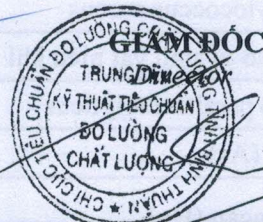 GIÁM ĐỐC
Director
CHI CỤC TIÊU CHUẨN ĐO LƯỜNG TỈNH BÌNH THUẬN
TRUNG
KỸ THUẬT TIÊU CHUẨN
ĐO LƯỜNG
CHẤT LƯỢNG